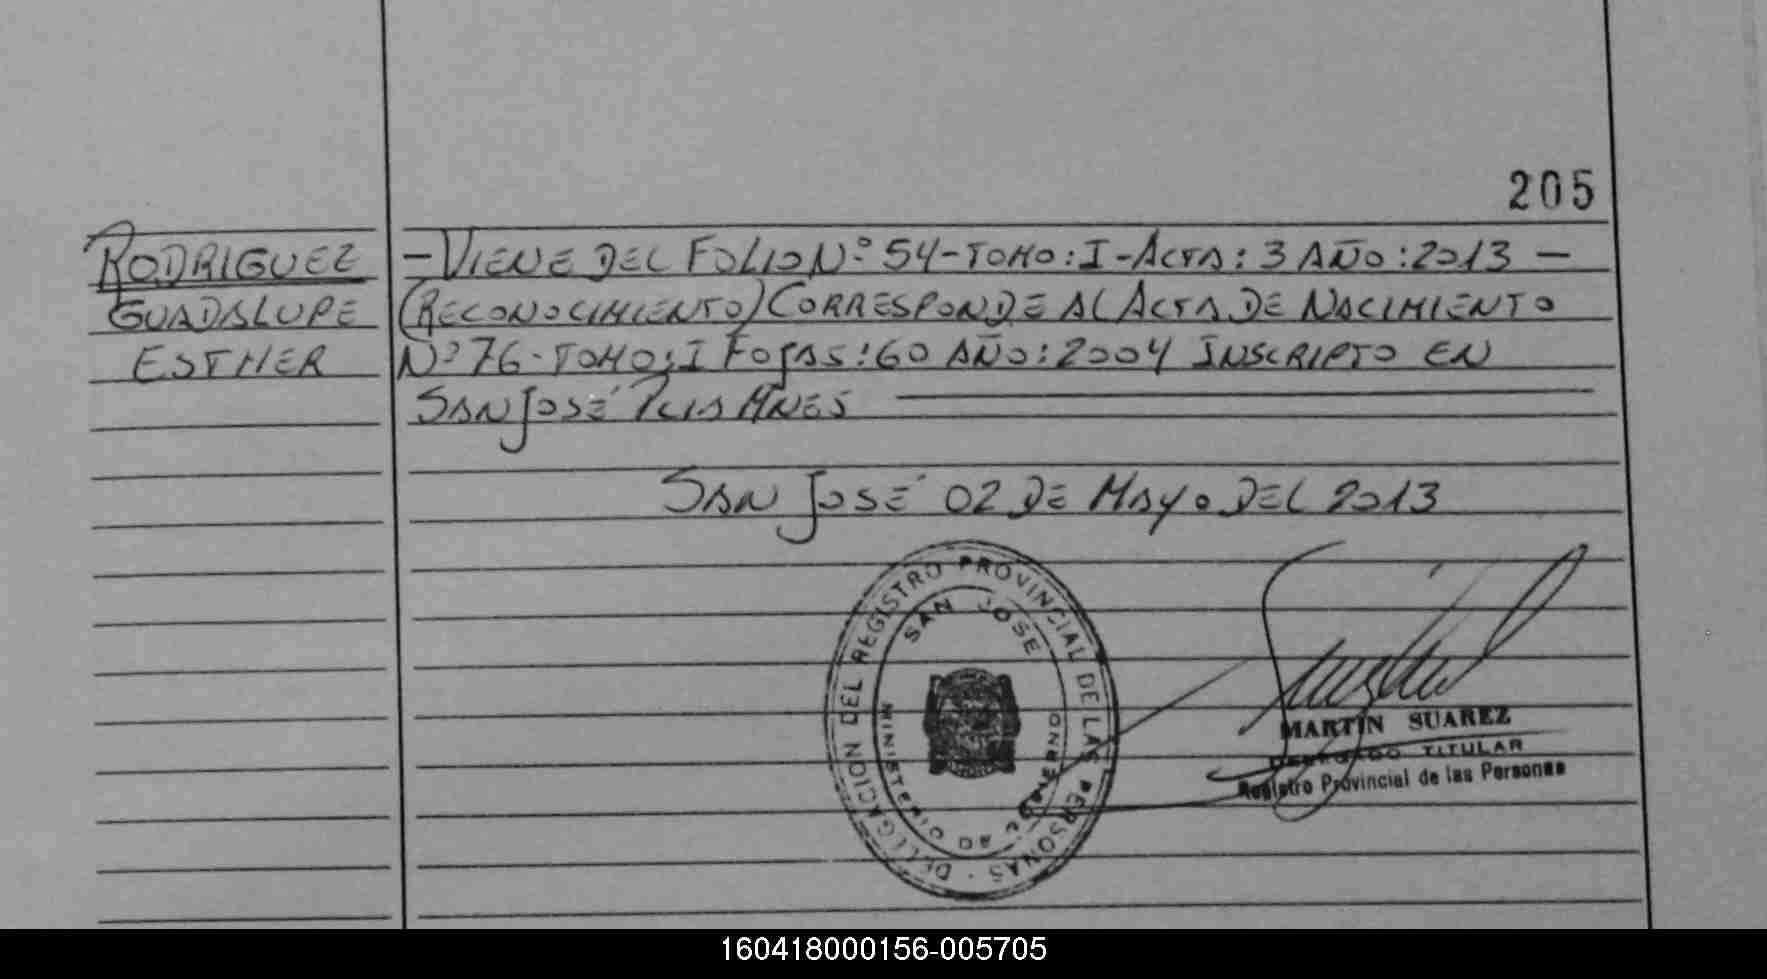 205
RODRIGUEZ
GUADALUPE
ESTHER
- VIENE DEL FOLIO N° 54 - TOMO: I - ACTA: 3 AÑO: 2013 -
(RECONOCIMIENTO) CORRESPONDE AL ACTA DE NACIMIENTO
N° 76 - TOMO: I FOJAS: 60 AÑO: 2004 INSCRIPTO EN
SAN JOSÉ
SAN JOSÉ 02 DE MAYO DEL 2013
DELEGACION DEL REGISTRO PROVINCIAL DE LAS PERSONAS
SAN JOSE
MINISTERIO DE GOBIERNO
MARTIN SUAREZ
DELEGADO TITULAR
Registro Provincial de las Personas
160418000156-005705